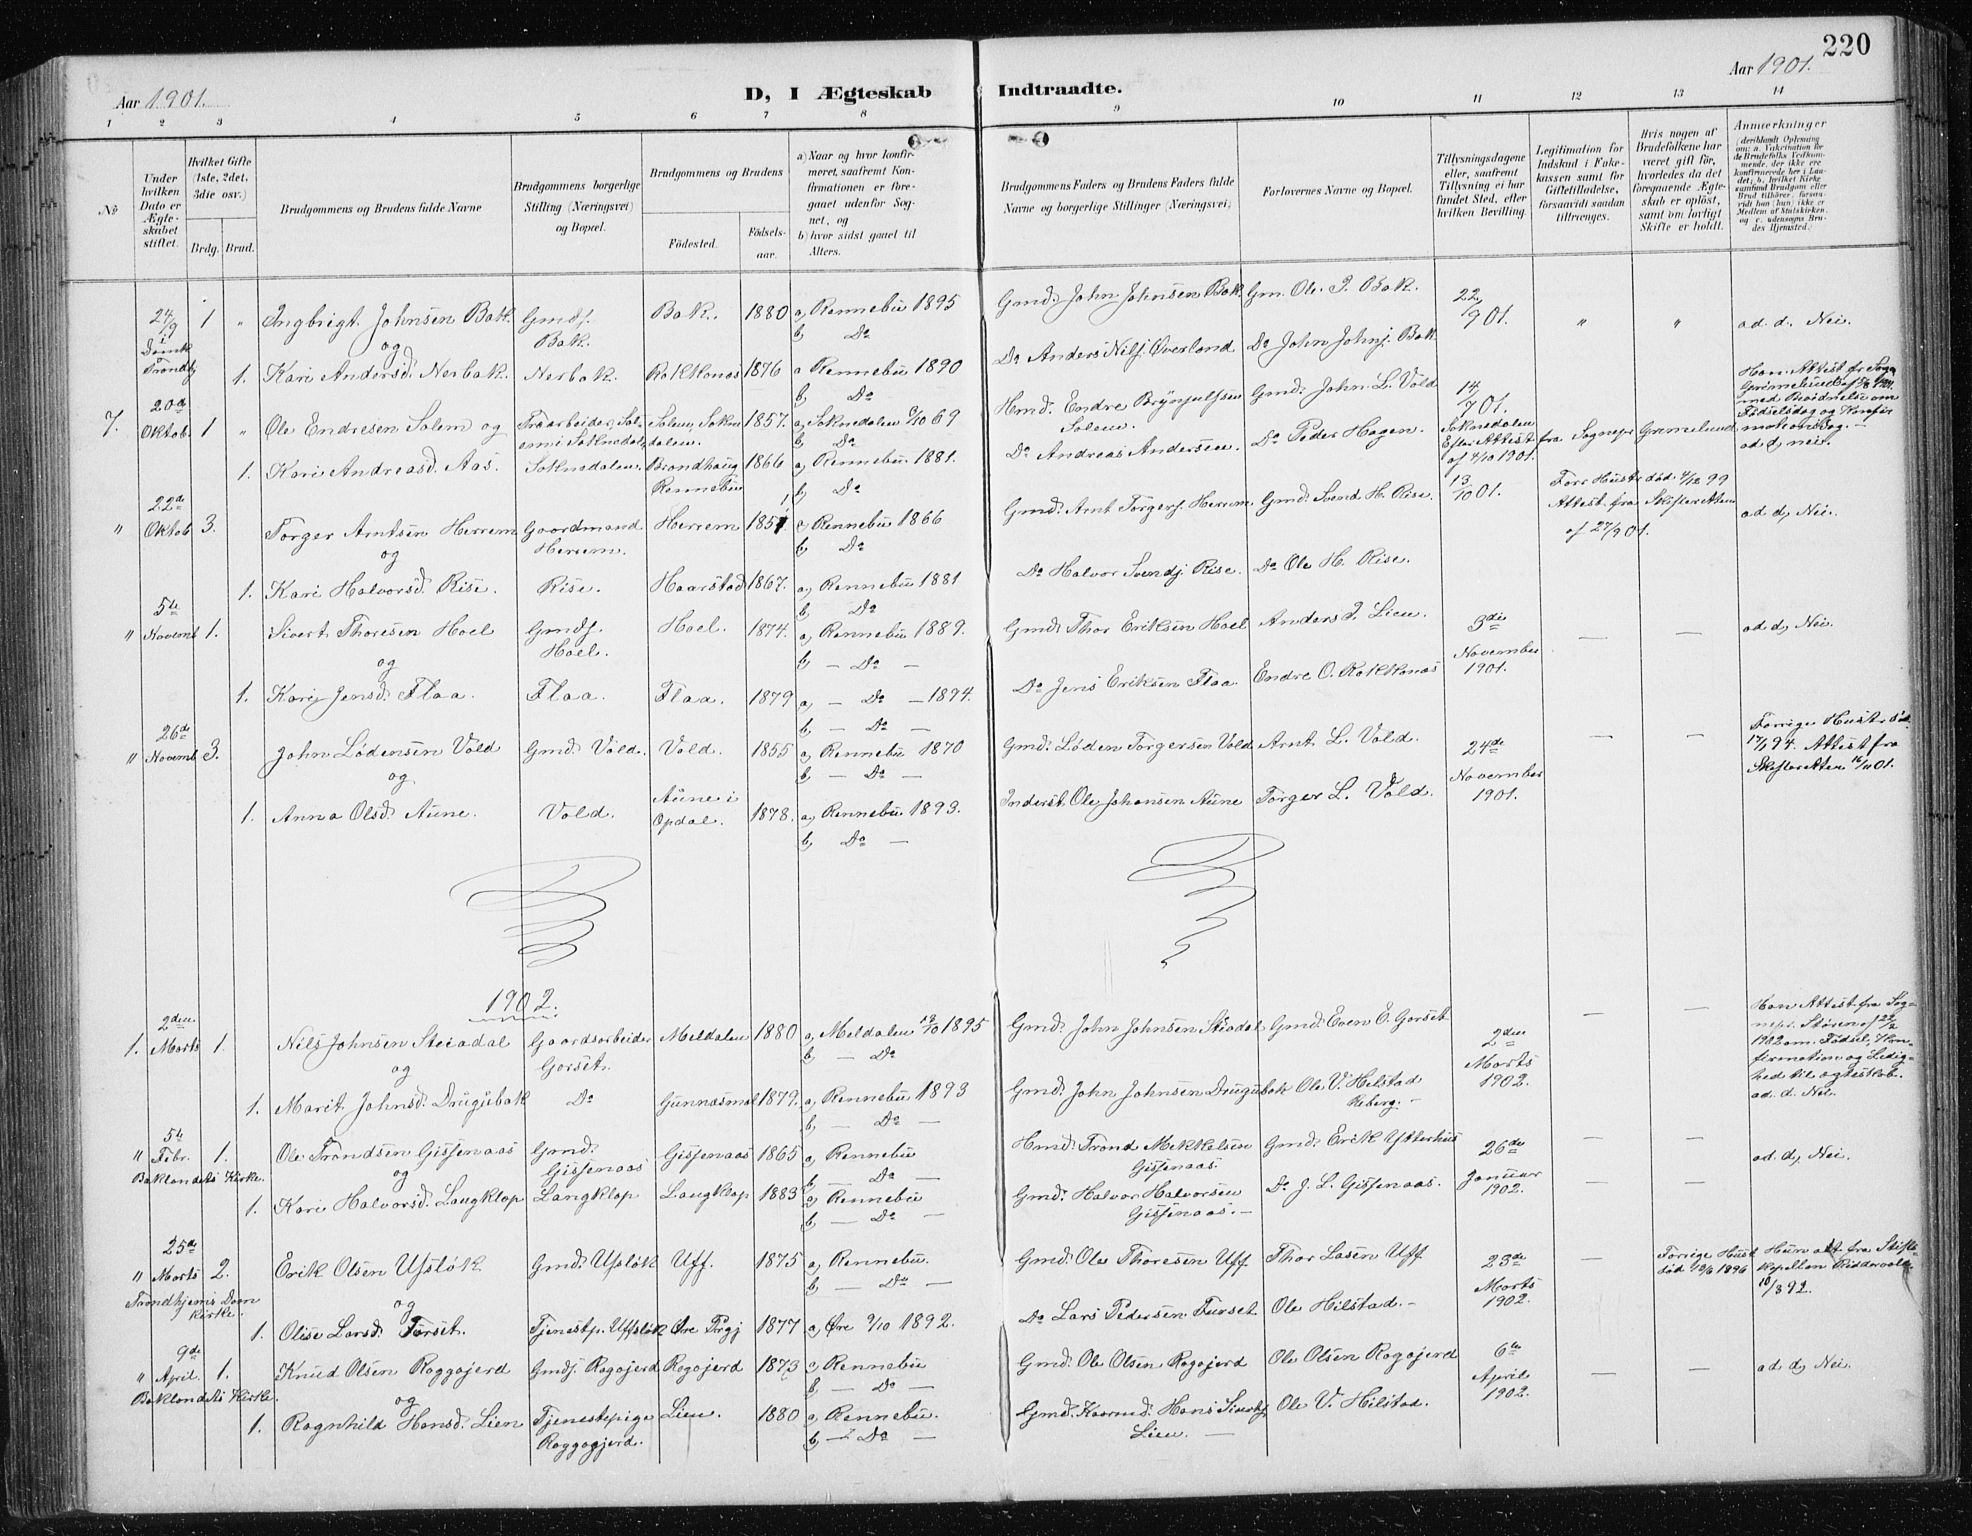 220
Aar 1901.
D, I Ægteskab Indtraadte.
Aar 1901.
1 2 3 4 5 6 7 8 9 10 11 12 13 14
No
Under hvilken Dato er Ægteskabet stiftet.
Hvilket Gifte (1ste, 2det, 3die osv.)
Brdg. Brud.
Brudgommens og Brudens fulde Navne
Brudgommens borgerlige Stilling (Næringsvei) og Bopæl.
Brudgommens og Brudens
Födested.
Födselsaar.
a) Naar og hvor konfirmeret, saafremt Konfirmationen er foregaaet udenfor Sognet, og
b) hvor sidst gaaet til Alters.
Brudgommens Faders og Brudens Faders fulde Navne og borgerlige Stillinger (Næringsvei)
Forlovernes Navne og Bopæl.
Tillysningsdagene eller, saafremt Tillysning ei har fundet Sted, efter hvilken Bevilling.
Legitimation for Indskud i Enkekassen samt for Giftetilladelse, forsaavidt saadan tiltrænges.
Hvis nogen af Brudefolkene har været gift för, hvorledes da det foregaaende Ægteskab er oplöst, samt om lovligt Skifte er holdt.
Anmærkninger
(deriblandt Oplysning om: a. Vakcination för de Brudefolks Vedkommende, der ikke ere konfirmerede her i Landet; b. hvilket Kirkesamfund Brudgom eller Brud tilhörer, forsaavidt han (hun) ikke er Medlem af Statskirken, og c. udensogns Brudes Hjemsted.)
24/9 i Domk Trondhj 1 " Ingbrigt Johnsen Bak Gmdf. Bak. Bak. 1880 a, Rennebu 1895 b, Do Gmd. John Johnsen Bak Gm. Ole J. Bak. 22/9 01. " " ad. d. Nei.
og
1. Kari Andersd. Nerbak. Nerbak. Rokkones 1876 a Rennebu 1890 b, Do Do Anders Nilsj. Øverland Do John Johnj. Bak
7. 20de Oktob. 1 " Ole Endresen Solem og Traarbeider, Solem i Soknedal Solem, Soknedalen. 1857. a, Soknedalen 6/10 69 b Do Hmd. Endre Brynjulfsen Solem. Gmd. John L. Vold 14/7 01. Soknedalen Efter Attest fra Sognepr Grimelund af 4/10 1901.
Han Attest fr Sogn Grimelund af med Bevidnelse om Fødselsdag og Konfirmationsdag. - ad. d, nei.
1. Kari Andreasd. Aas. Soknedalen. Brandhaug Rennebu 1866 a, Rennebu 1881. b, Do Do Andreas Andersen. Do Peder Hagen.
" 22de Oktob 3. Torger Arntsen Herrem Gaardmand Herrem. Herrem 1851 a, Rennebu 1866 b, Do Gmd. Arnt Torgersj. Herrem Gmd. Svend H. Rise. 13/10 01. Forr Hustr død 4/12 99 Attest fra Skifteretten af 27/9 01. ad. d, Nei.
og
1. Kari Halvorsd. Rise. Rise. Haarstad 1867. a, Rennebu 1881 b, Do Do Halvor Svendj. Rise. Do Ole H. Rise.
" 5te Novemb 1. Sivert Thoresen Hoel Gmdf. Hoel. Hoel. 1874. a, Rennebu 1889. b, — Do — Gmd. Thor Eriksen Hoel Anders J. Lien. 3die November 1901. — — ad. d, Nei.
og
1. Kari Jensd. Flaa. Flaa. Flaa. 1879 a, — Do — 1894. b — Do — Do Jens Eriksen Flaa. Endre O. Rokkones
" 26de Novemb 3. John Lødensen Vold Gmd. Vold. Vold. 1855 a, Rennebu 1870 b — Do — Gmd. Løden Torgersen Vold Arnt L. Vold. 24de November 1901. — — Forrige Hustr død 17/1 94. Attest fra Skifteretten 16/11 01.
og
1. Anna Olsd. Aune. Vold. Aune i Opdal. 1878. a, Rennebu 1893. b, Do — Inderst Ole Johansen Aune Torger L. Vold.
1902.
1. 2den Marts 1. Nils Johnsen Steiadal Gaardsarbeider Gorset. Meldalen 1880 a, Meldalen 13/10 1895 b — Do Gmd. John Johnsen Stiadal Gmd. Even E. Gorset 2den Marts 1902. — — Han Attest fra Sognepr. Støren af 22/2 1902 om Fødsel, Konfirmation og Ledighed til ægteskab. ad. d. Nei.
og
1. Marit Johnsd. Drugubak Do Gunnesmoe 1879. a, Rennebu 1893 b, — Do — Gmd. John Johnsen Drugubak Ole V. Hilstad Reberg. -
" 5te Febr. Baklandets Kirke. 1. Ole Trondsen Gisjenaas Gmd. Gisjenaas Gisjenaas 1865 a, Rennebu b — Do — Hmd. Trond Mekkelsen Gisjenaas. Gmd. Erik Ytterhus 26de Januar 1902. — — ad. d, Nei.
og
1. Kari Halvorsd. Langklop Langklop Langklop 1883 a, Rennebu b — Do — Gmd. Halvor Halvorsen Gisjenaas. - Do J. L. Gisjenaas.
" 25de Marts Trondhjems Domkirke. 2. Erik Olsen Ufsløk Gmd. Ufsløk Uff. 1875 a, Rennebu. b — Do — Gmd. Ole Thoresen Uff Thor Lasen Uff 23de Marts 1902. — Forrige Hust død 12/6 1896 Hun att fra Stiftskapellan Riddervold 10/3 92.
og
1. Olise Larsd. Forset. Tjenestp. Uffsløk Øre Trgj 1877 a, Øre 9/10 1892. Do Lars Pedersen Furset. Ole Hilstad. -
" 9de April. Baklandets Kirke. 1. Knud Olsen Roggojerd Gmdf. Rogojerd Rogojerd 1873 a, Rennebu b — Do — Gmd. Ole Olsen Rogojerd Ole Olsen Rogojerd 6te April 1902. — — ad. d, Nei.
og
1. Ragnhild Hansd. Lien Tjenestepige Roggogjerd. Lien. 1880 a, Rennebu. b, — Do — Gmd. Kaarmd. Hans Siverts Lien. — Ole V. Hilstad.